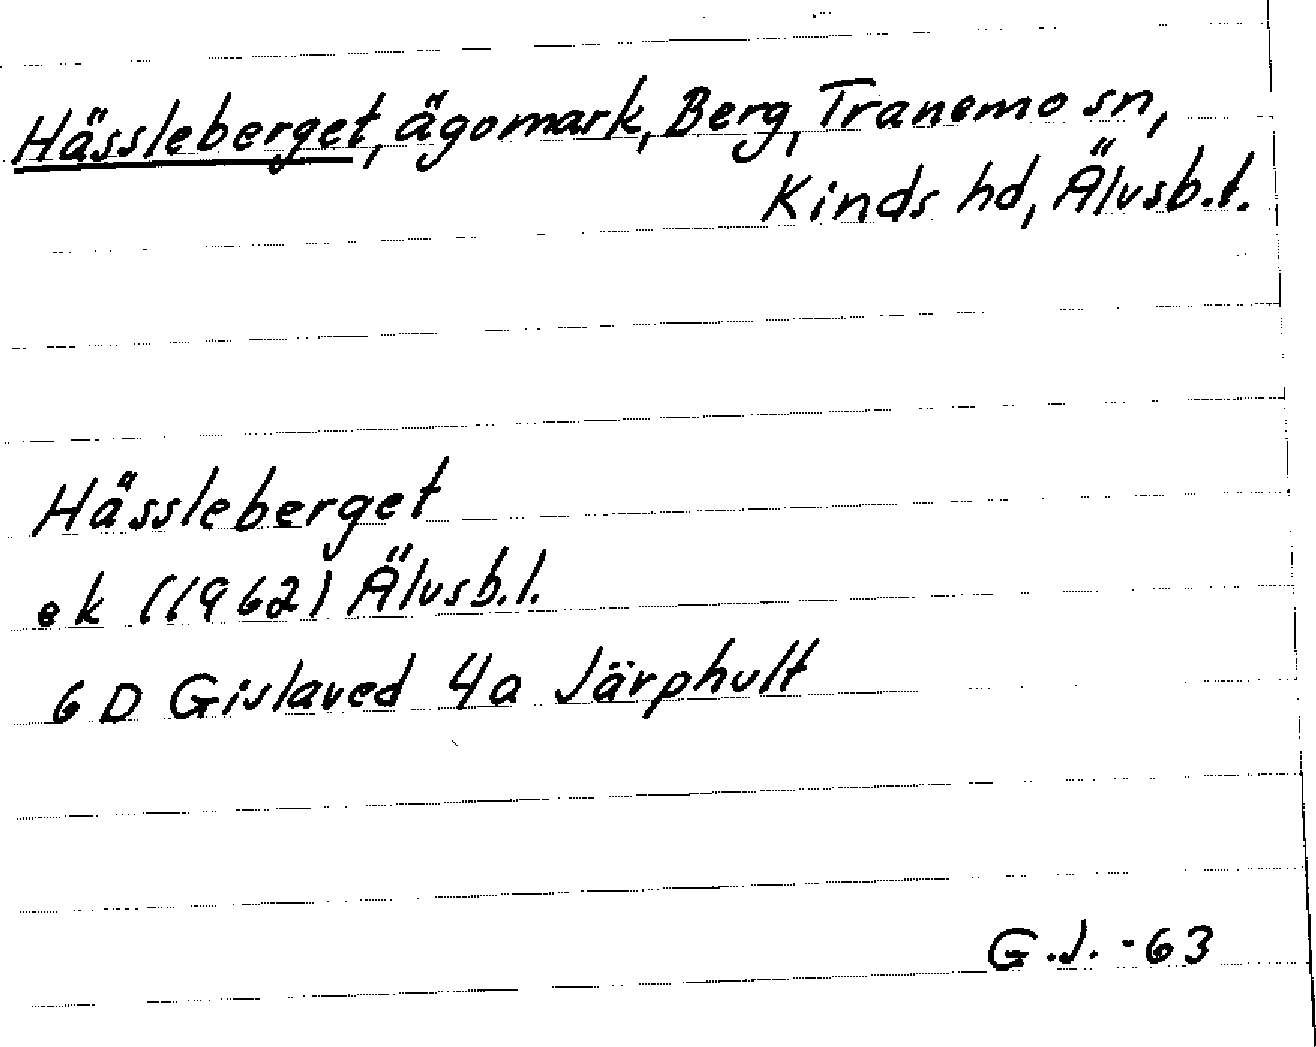 Hässleberget, ägomark, Berg, Tranemo sn,
Kinds hd, Älvsb.l.
Hässleberget
ek (1962) Älvsb.l.
6 D Gislaved 4a Järphult
G.J. -63